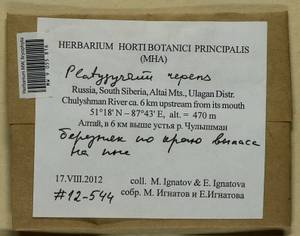 HERBARIUM HORTI BOTANICI PRINCIPALIS
(MHA)
Platygyrium repens
Russia, South Siberia, Altai Mts., Ulagan Distr.
Chulyshman River ca. 6 km upstream from its mouth
51°18' N – 87°43' E, alt. = 470 m
Алтай, в 6 км выше устья р. Чулышман
березняк по краю выпаса
на пне
17.VIII.2012
coll. M. Ignatov & E. Ignatova
собр. М. Игнатов и Е.Игнатова
#12-544